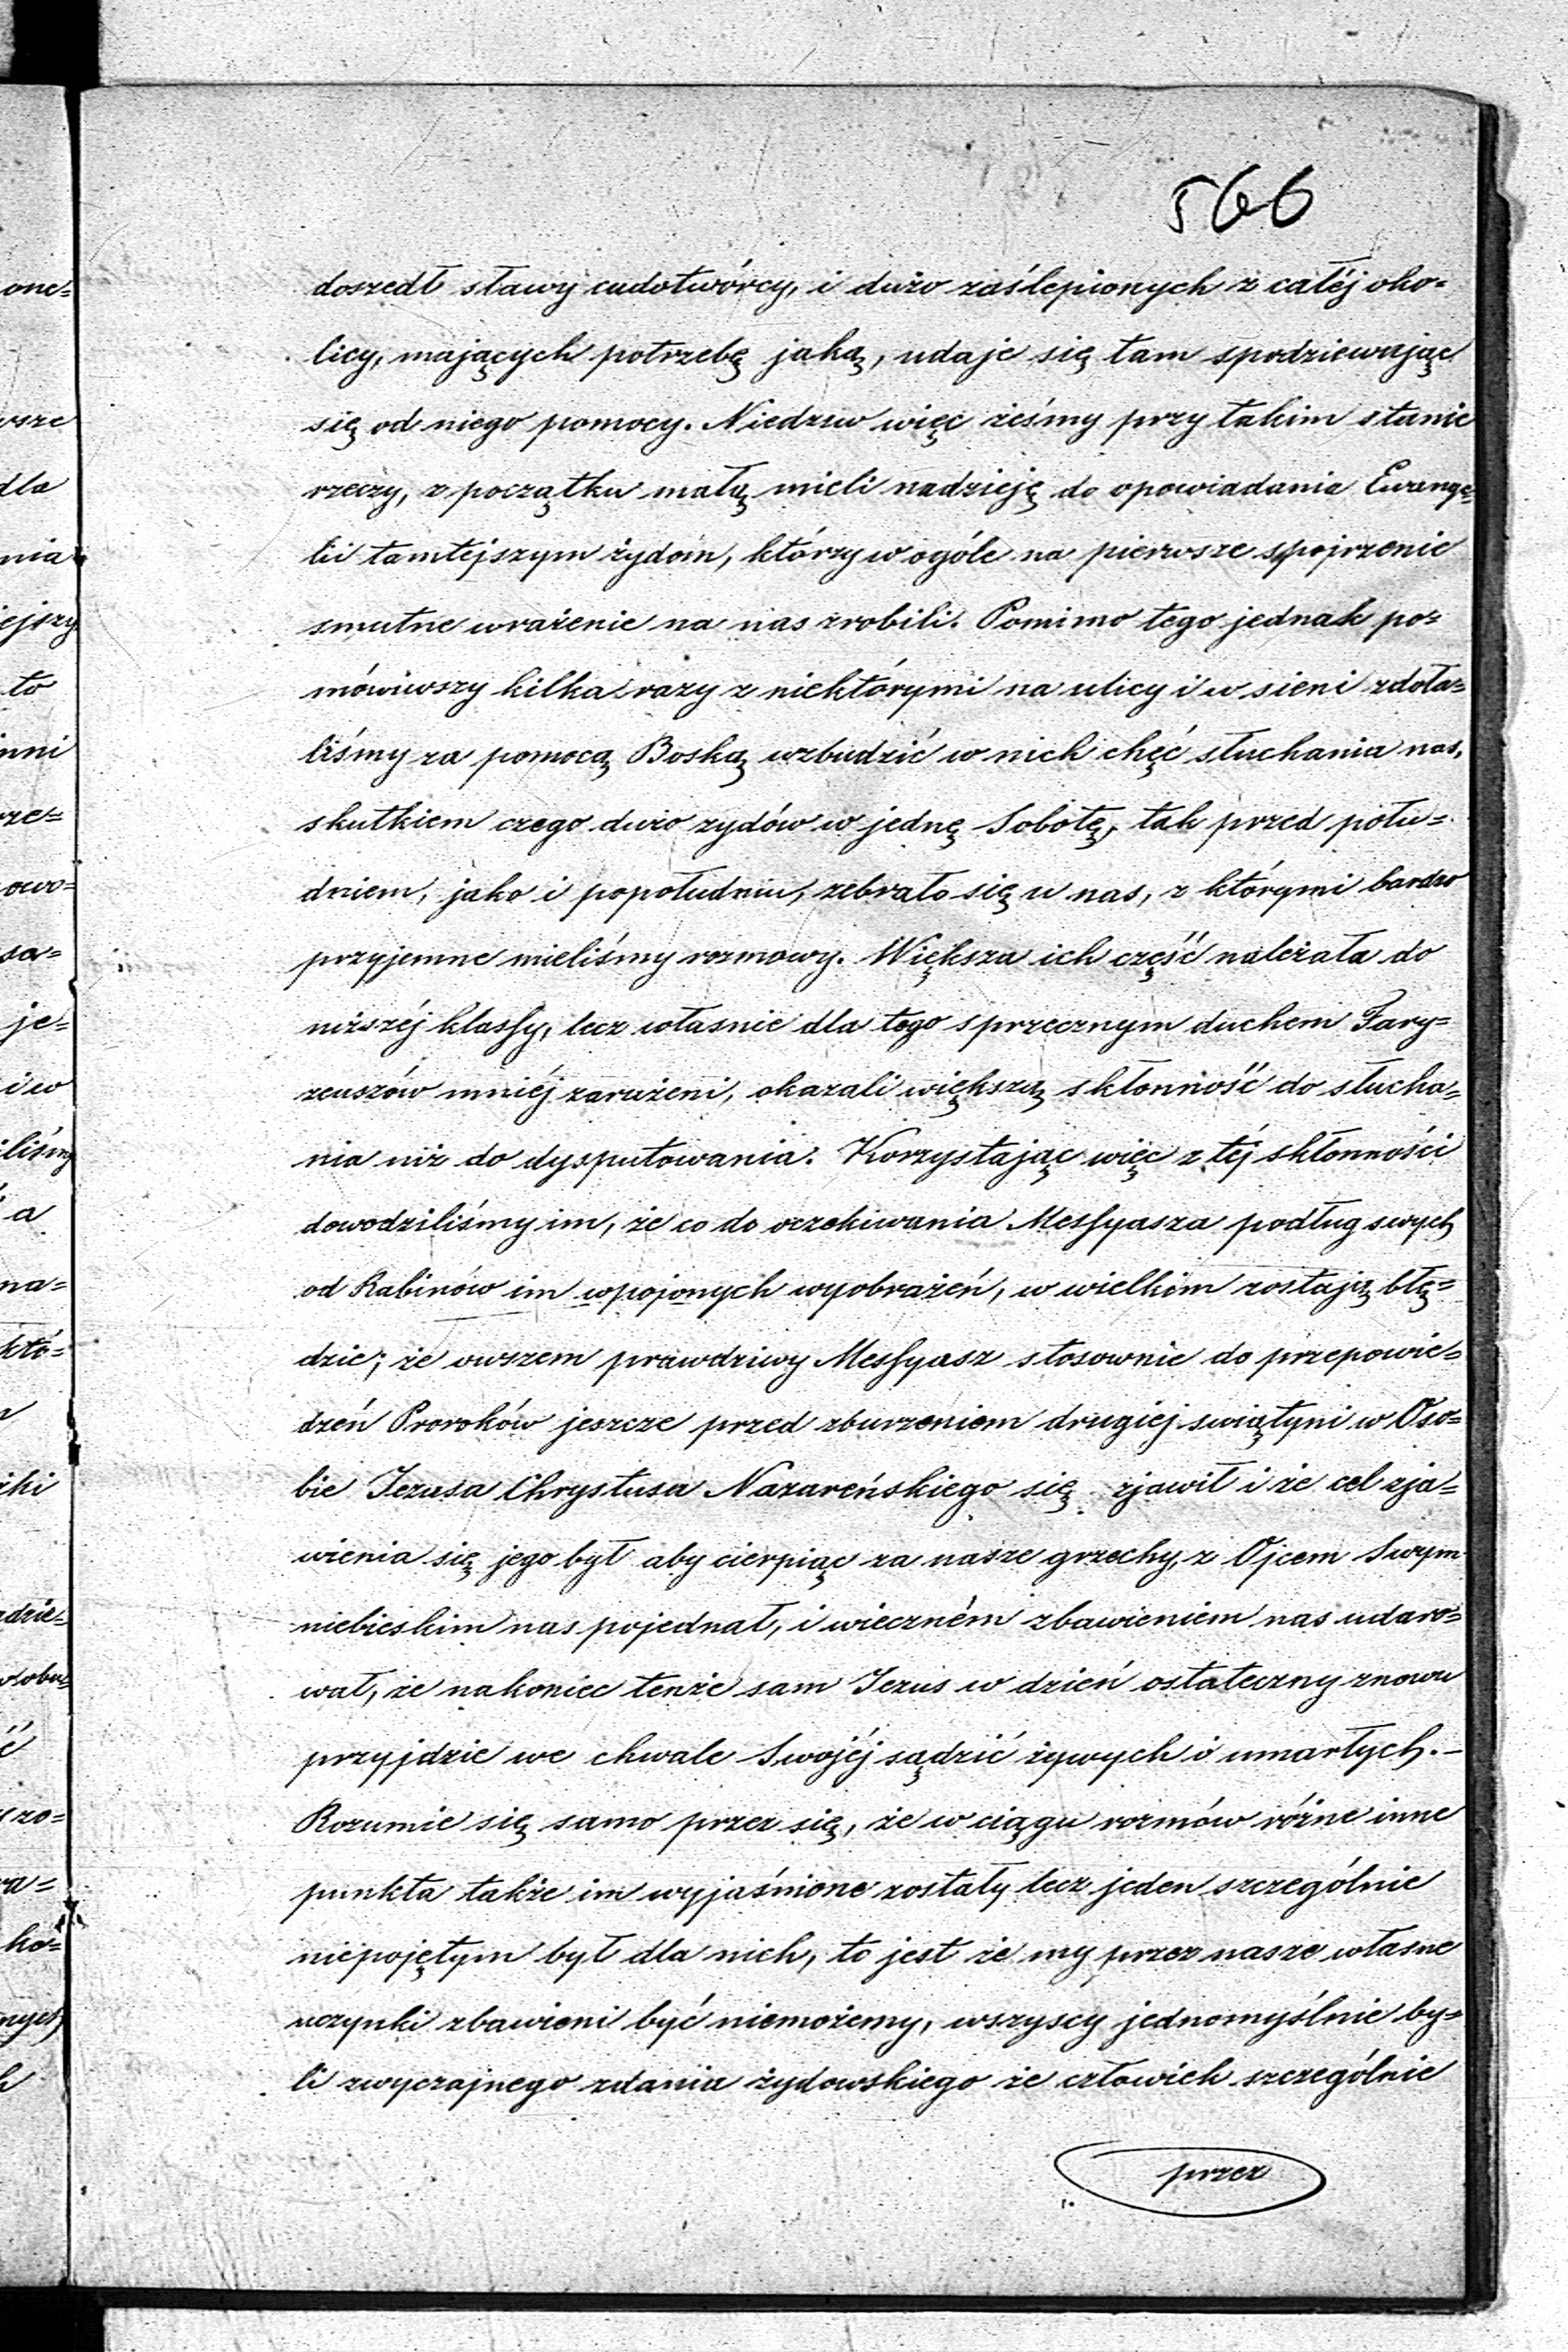 566
doszedł sławy cudotwórcy, i dużo zaślepionych z całéj oko=
licy, mających potrzebę jaką, udaje się tam spodziewając
się od niego pomocy. Niedziw więc żeśmy przy takim stanie
rzeczy, z początku małą mieli nadzieję do opowiadania Ewange=
lii tamtejszym żydom, którzy w ogóle na pierwsze spojrzenie
smutne wrażenie na nas zrobili. Pomimo tego jednak po=
mówiwszy kilka razy z niektórymi na ulicy i w sieni zdoła=
liśmy za pomocą Boską wzbudzić w nich chęć słuchania nas,
skutkiem czego dużo zydów w jednę Sobotę, tak przed połu=
dniem, jako i popołudniu, zebrało się u nas, z którymi bardzo
przyjemne mieliśmy rozmowy. Większa ich część należała do
niższéj klassy, lecz własnie dla tego sprzecznym duchem Fary=
zeuszów mniéj zarażeni, okazali większą skłonność do słucha=
nia niż do dysputowania. Korzystając więc z téj skłonności
dowodziliśmy im, że co do oczekiwania Messyasza podług swych
od Rabinów im wpojonych wyobrażeń, w wielkim zostają błę=
dzie; że owszem prawdziwy Messyasz stosownie do przepowie=
dzeń Proroków jeszcze przed zburzeniem drugiej swiątyni w Oso=
bie Jezusa Chrystusa Nazareńskiego się zjawił i że cel zja=
wienia się jego był aby cierpiąc za nasze grzechy, z Ojcem Swym
niebieskim nas pojednał, i wieczném zbawieniem nas udaro=
wał, że nakoniec tenże sam Jezus w dzień ostateczny znowu
przyjdzie we chwale Swojéj sądzić żywych i umarłych.—
Rozumie się samo przez się, że w ciągu rozmów różne inne
punkta także im wyjaśnione zostały lecz jeden szczególnie
niepojętym był dla nich, to jest że my przez nasze własne
uczynki zbawieni być niemożemy, wszyscy jednomyślnie by=
li zwyczajnego zdania żydowskiego że człowiek szczególnie
przez